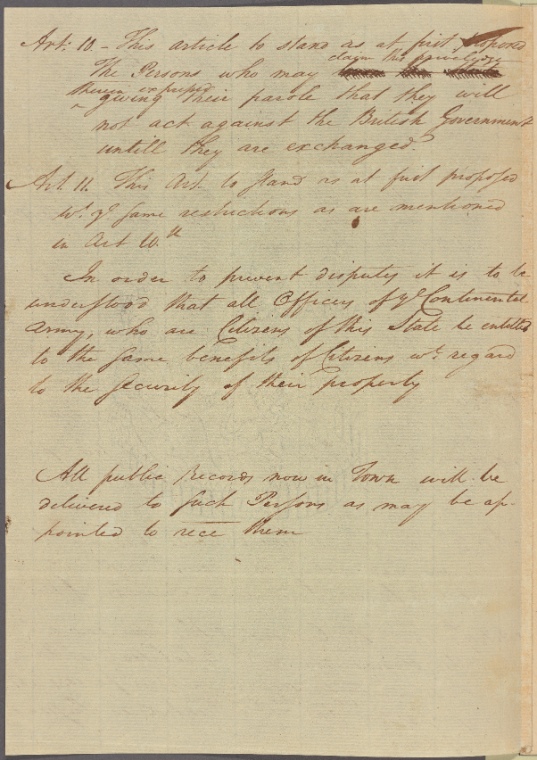 Art: 10 - This article to stand as at first proposed
claim the priviledge
The Persons who may
therein expressed
giving their parole that they will
not act against the British Government
untill they are exchanged.
Art 11. This Art. to stand as at first proposed
wt. ye. same restrictions as are mentioned
in Art 10.th
In order to prevent disputes it is to be
understood that all Officers of ye. Continental
Army, who are Citizens of this State be entitled
to the same benefits of Citizens wt. regard
to the security of their property
All public Records now in Town will be
delivered to such Persons as may be ap-
pointed to rece them